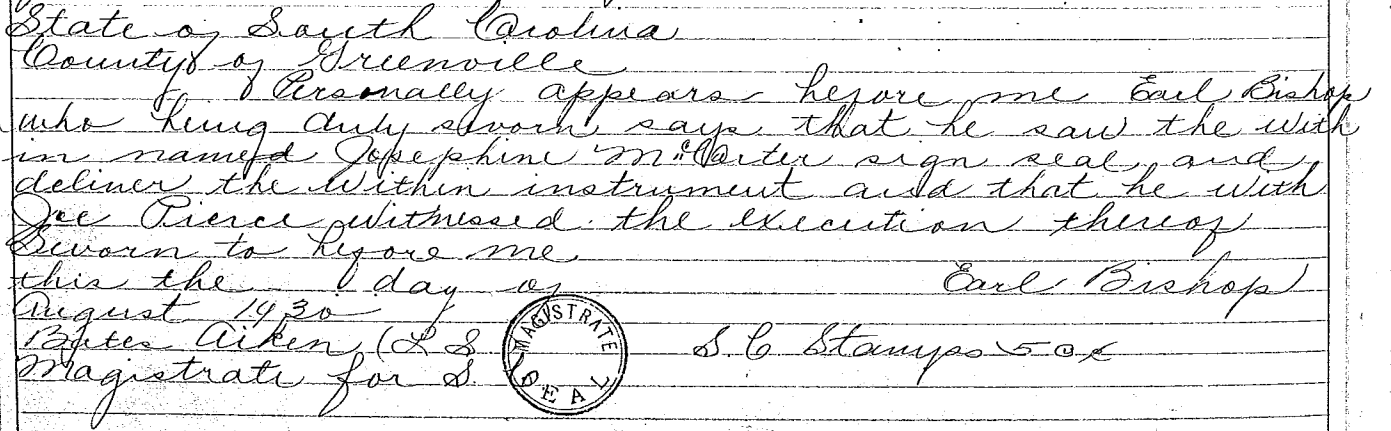 State of South Carolina
County of Greenville
Personally appears before me Earl Bishop
who being duly sworn says that he saw the with
in named Josephine McCarter sign seal and
deliver the within instrument and that he with
Joe Pierce witnessed the execution thereof
Sworn to before me
this the day of Earl Bishop
August 1930
Bates Aiken (L S MAGISTRATE SEAL S. C Stamps 50¢
Magistrate for S.